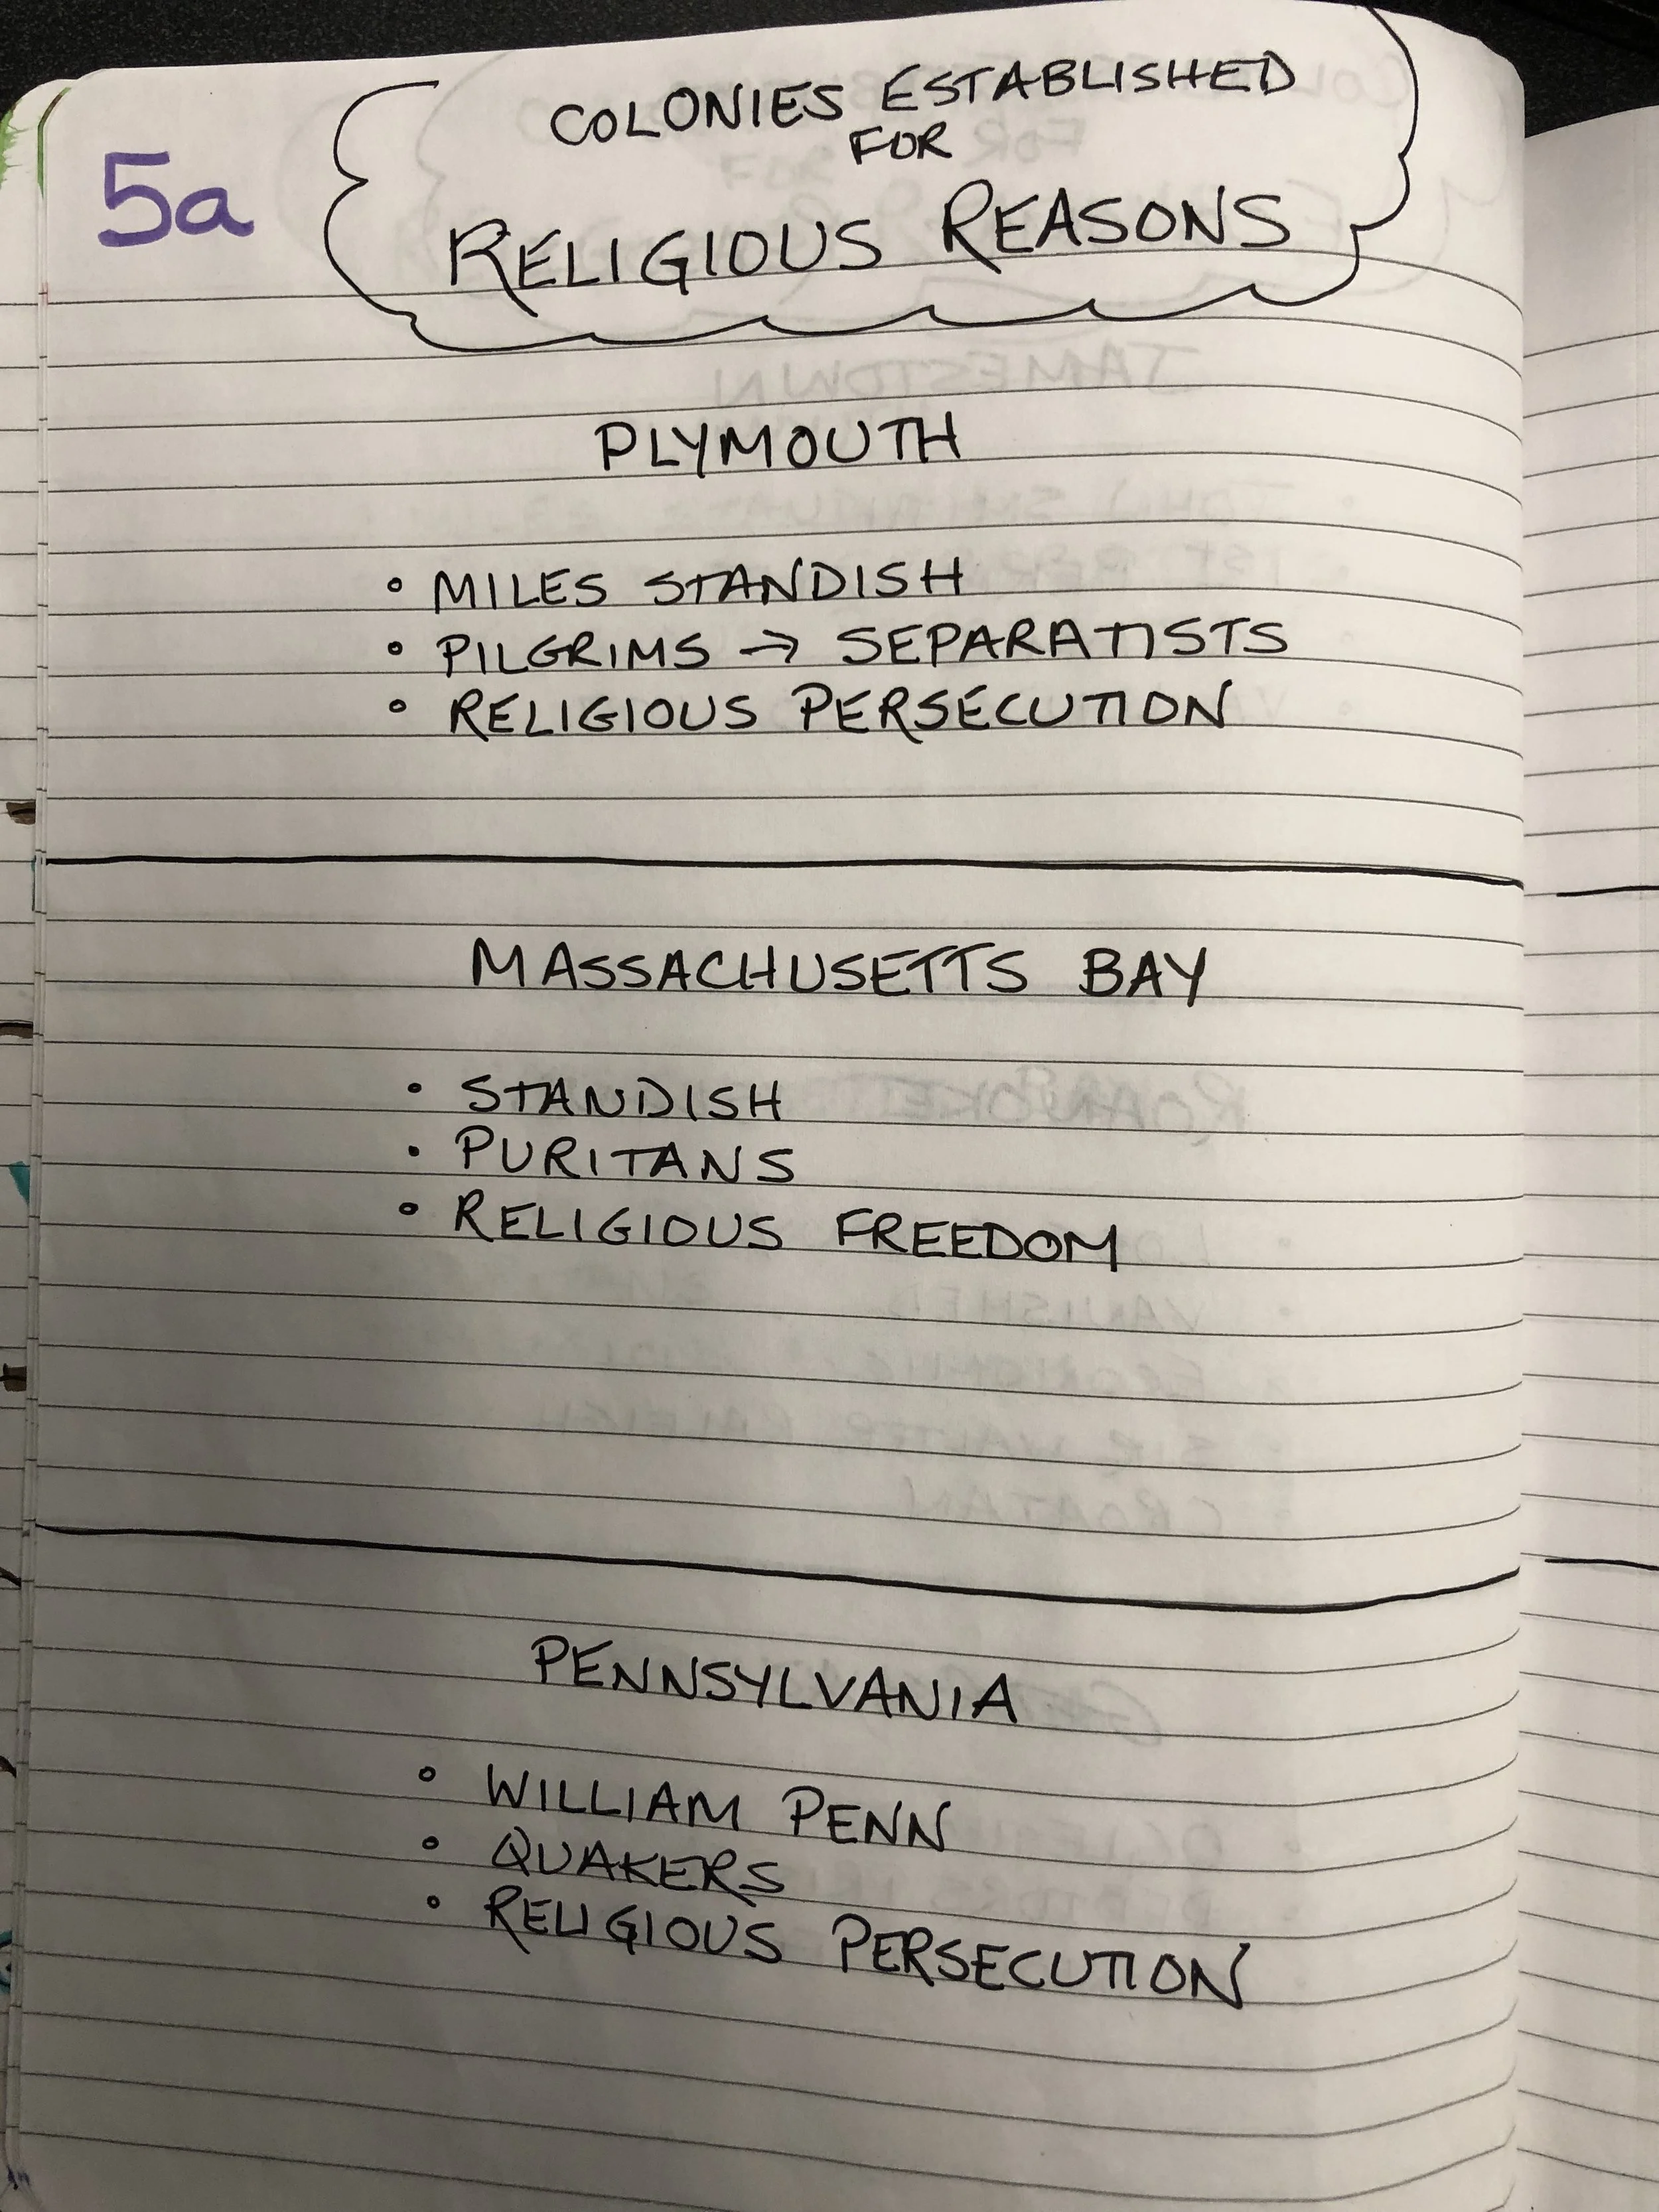 5a
COLONIES ESTABLISHED
FOR
RELIGIOUS REASONS
PLYMOUTH
• MILES STANDISH
• PILGRIMS → SEPARATISTS
• RELIGIOUS PERSECUTION
MASSACHUSETTS BAY
• STANDISH
• PURITANS
• RELIGIOUS FREEDOM
PENNSYLVANIA
• WILLIAM PENN
• QUAKERS
• RELIGIOUS PERSECUTION